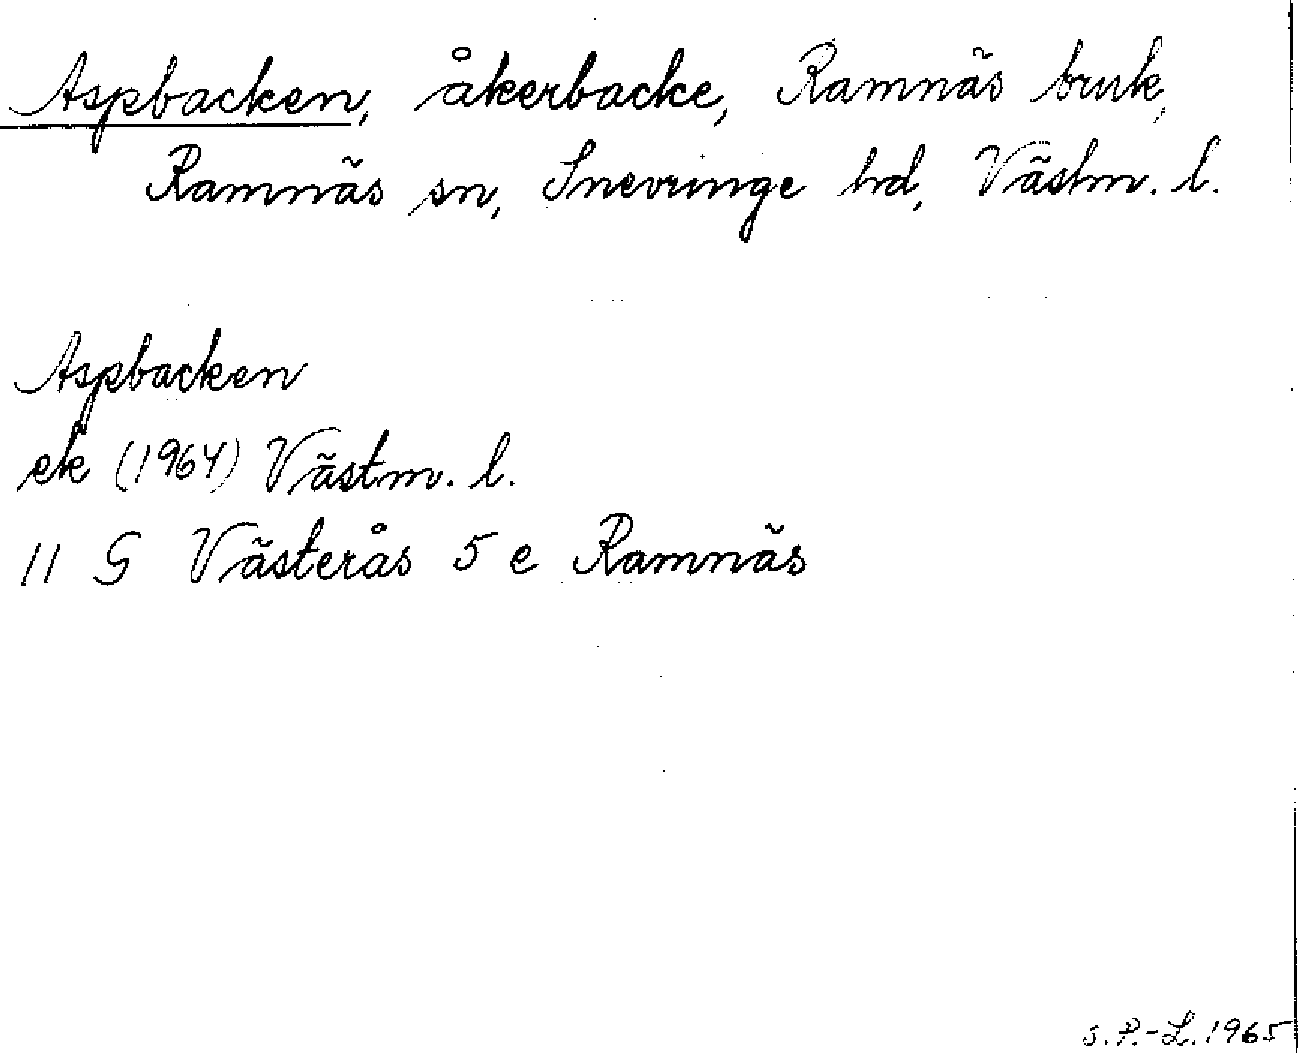 Aspbacken, åkerbacke, Ramnäs bruk,
Ramnäs sn, Snevringe hd, Västm. l.
Aspbacken
ek (1964) Västm. l.
11 G Västerås 5 e Ramnäs
S. P.-L. 1965